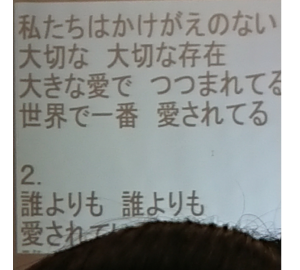 私たちはかけがえのない
大切な 大切な存在
大きな愛で つつまれてる
世界で一番 愛されてる
2.
誰よりも 誰よりも
愛されて